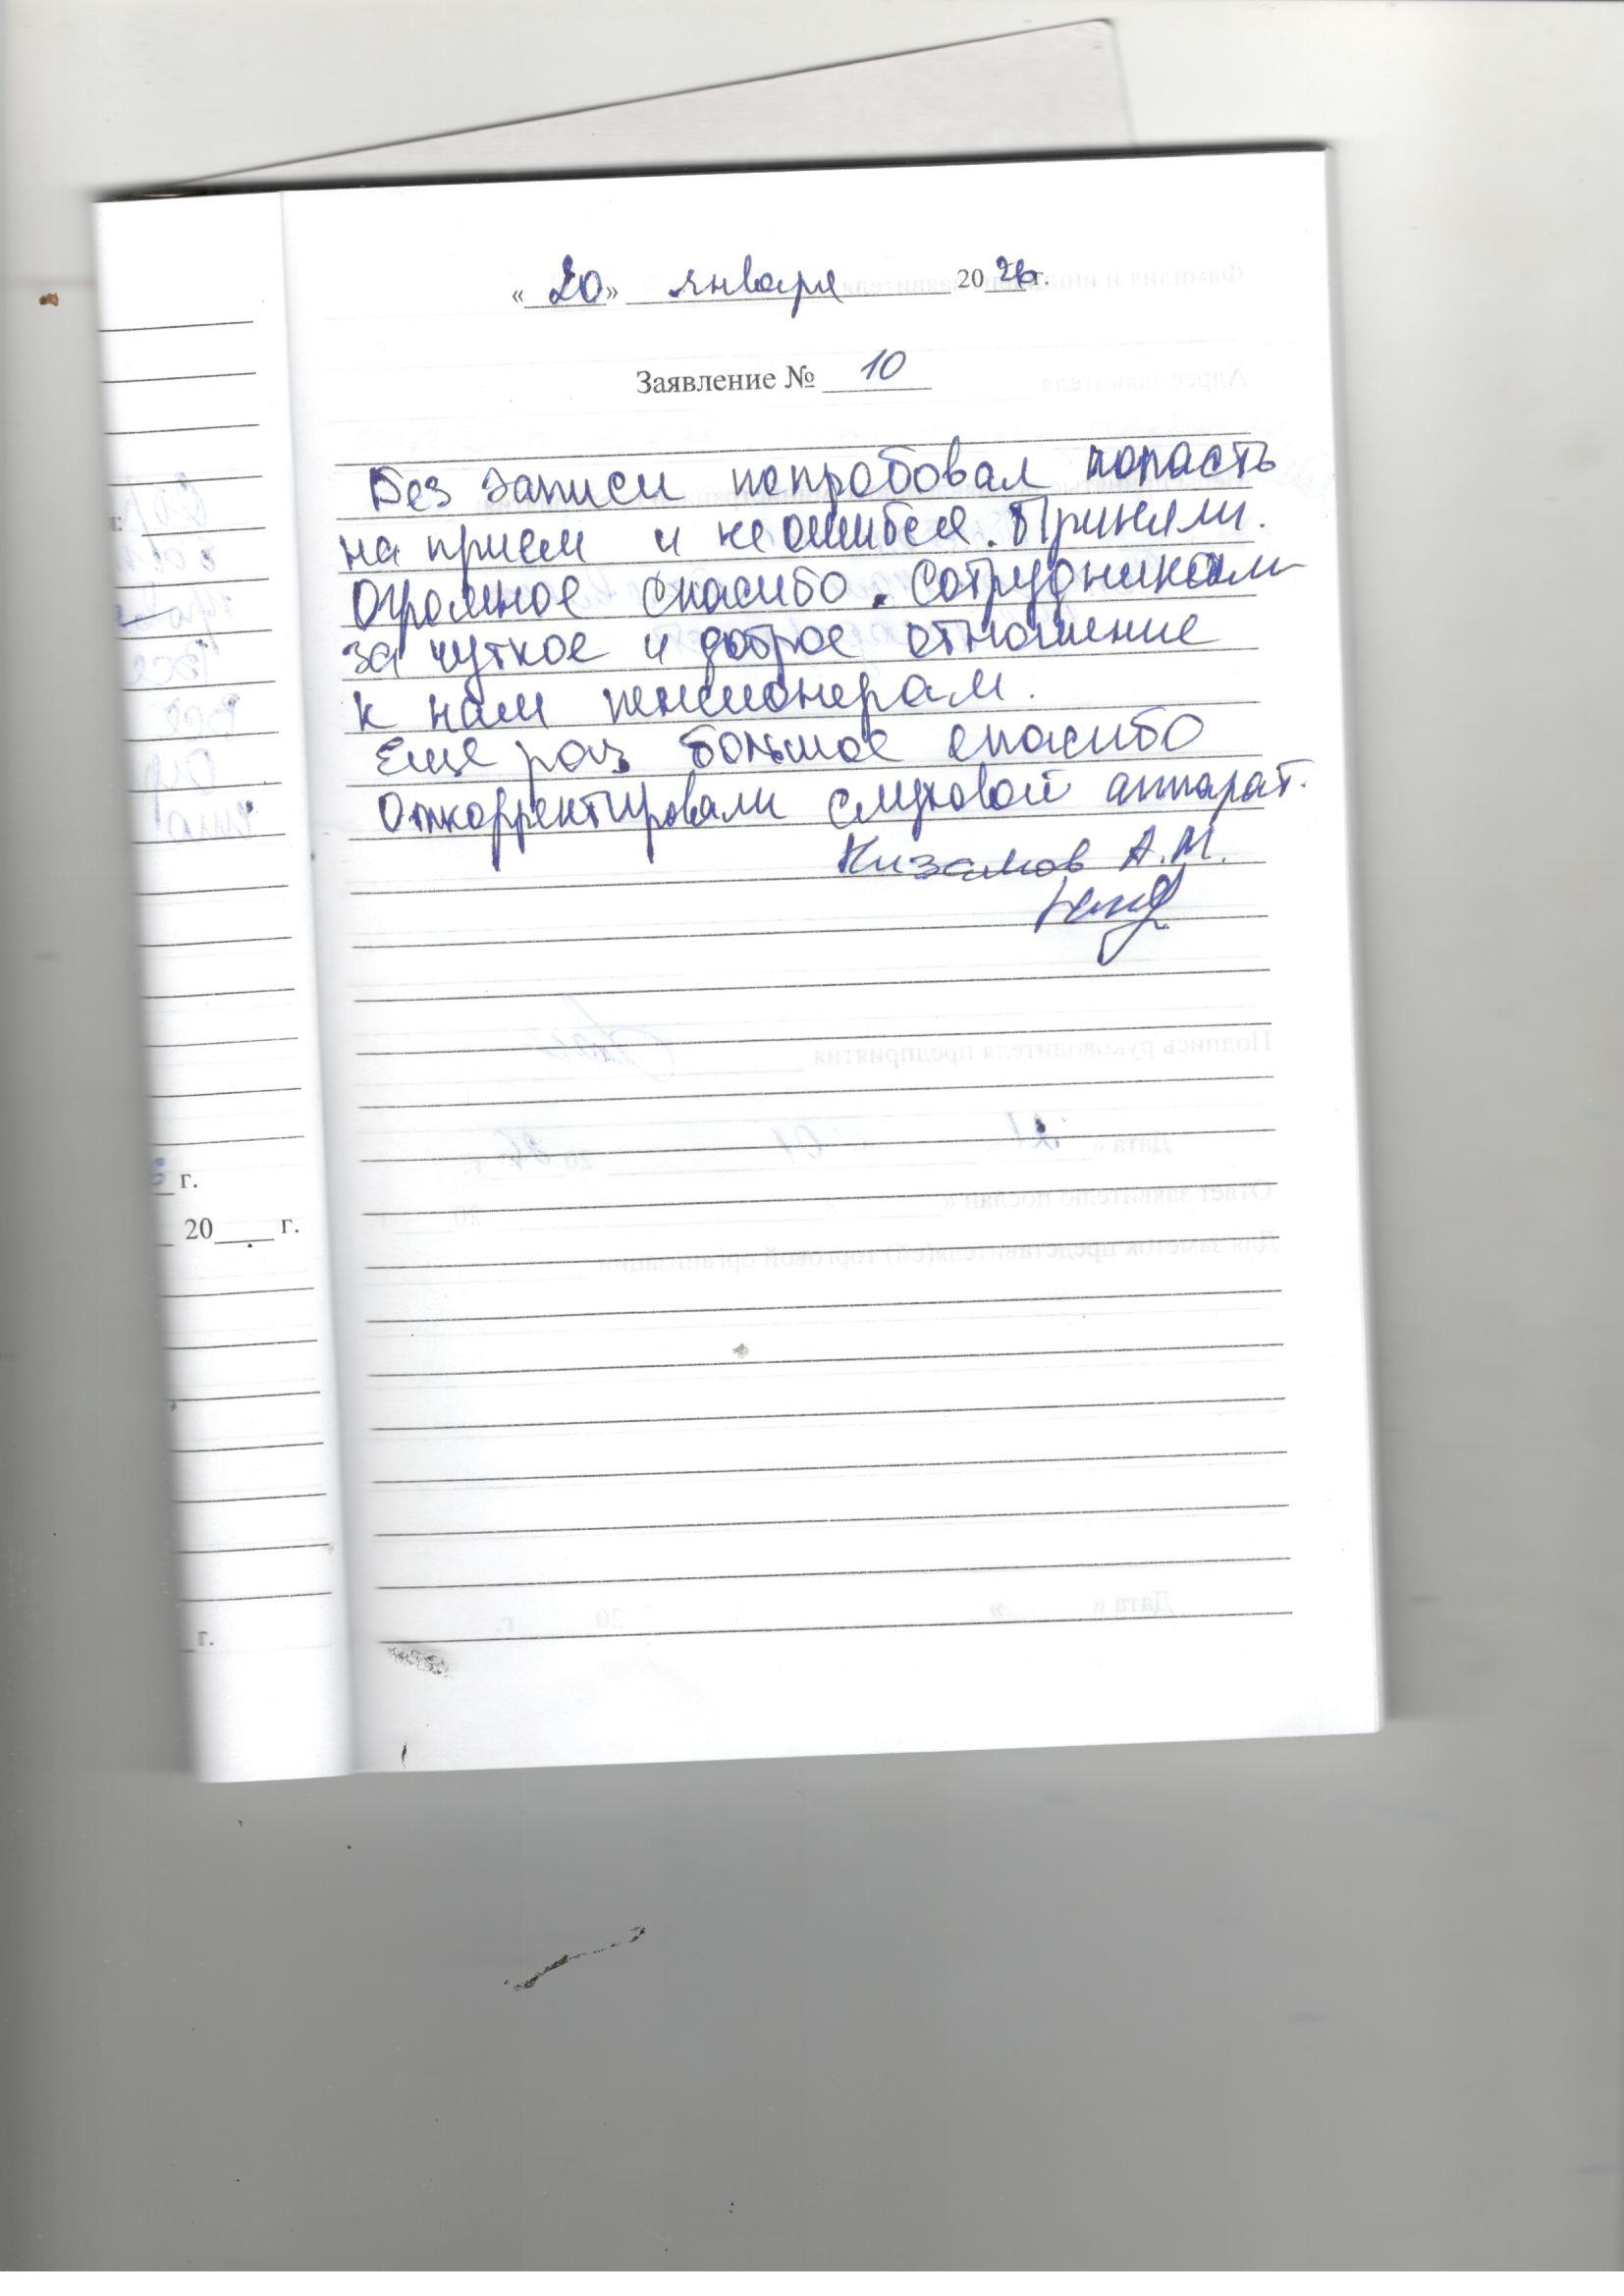 « 20 » января 2026 г.
Заявление № 10
Без записи попробовал попасть
на прием и не ошибся. Приняли.
Огромное спасибо. Сотрудникам
за чуткое и доброе отношение
к нам пенсионерам.
Еще раз большое спасибо
Откоррентировали слуховой аппарат.
Низамов А.М.
г.
20 г.
г.